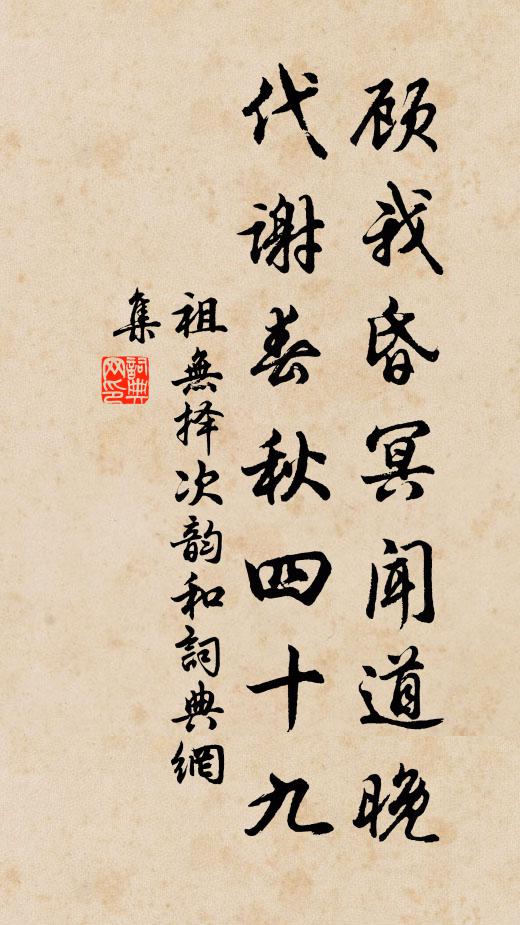 顾我昏冥闻道晚
代谢春秋四十九
祖無择次韵和詞典網
集
詞典网印